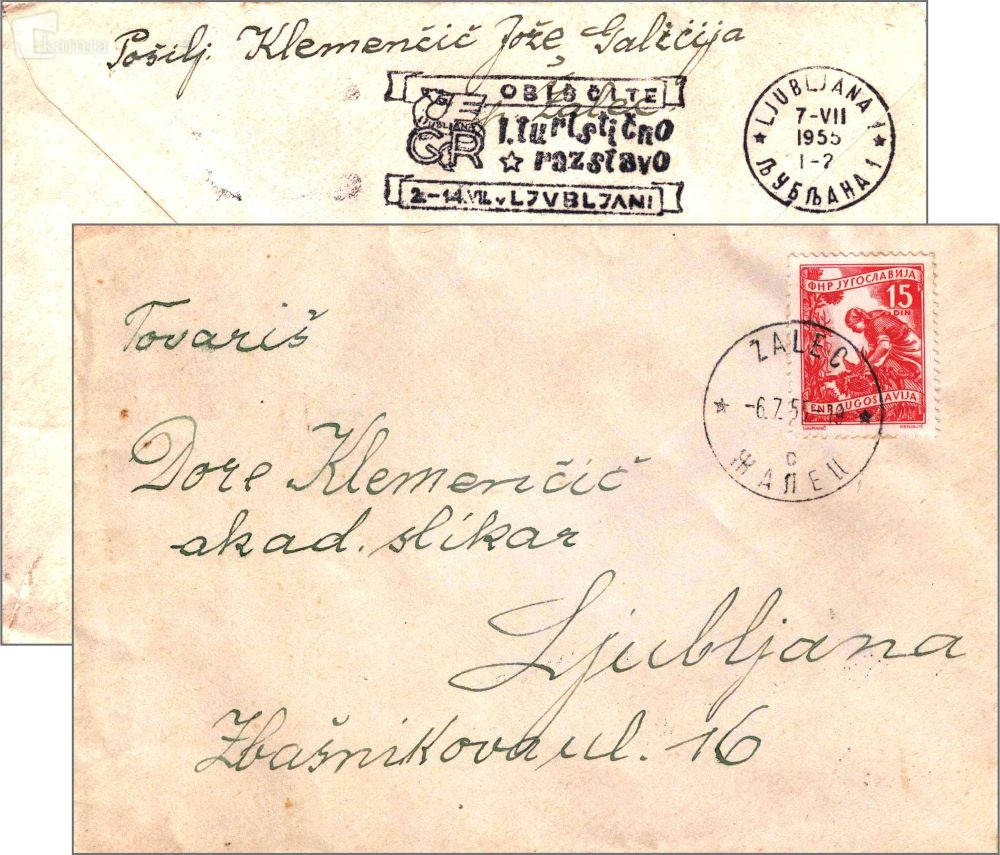 kamra
Pošilj. Klemenčič Jože Galicija
p. Žalec
OBIŠČITE
LJUBLJANA
GR
1. turistično
razstavo
2.-14. VII. v LJUBLJANI
LJUBLJANA 1
7-VII
1955
1-2
ЉУБЉАНА 1
ФНР ЈУГОСЛАВИЈА
15
DIN
FNR JUGOSLAVIJA
ŽALEC
-6.7.55
c
ЖАЛЕЦ
Tovariš
Dore Klemenčič
akad. slikar
Ljubljana
Zbašnikova ul. 16